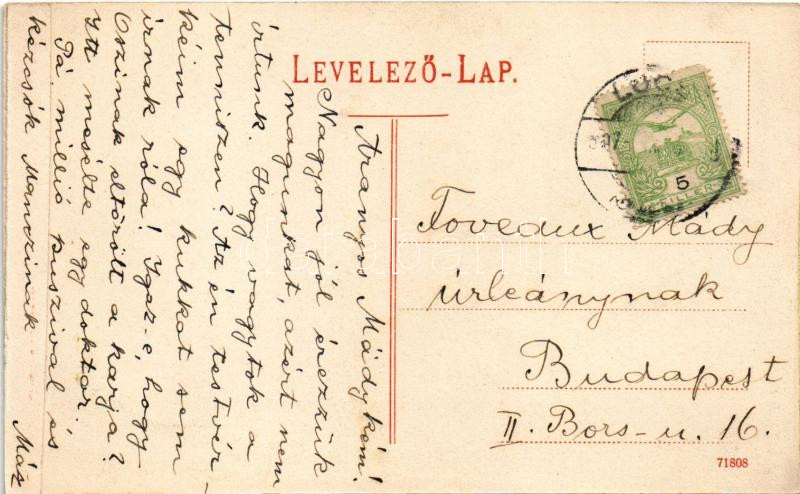 LEVELEZŐ-LAP.
Aranyos Mádykém!
Nagyon jól érezzük
magunkat, azért nem
írtunk. Hogy vagytok a
tenniszen? Az én testvér-
kéim egy kukkot sem
irnak róla! Igaz-e, hogy
Oszinak eltörött a karja?
Itt mesélte egy doktor.
Pá, millió puszival és
kézcsók Manczinak
Foveaux Mády
úrleánynak
Budapest
II. Bors-u. 16.
5
FILLÉR
71808